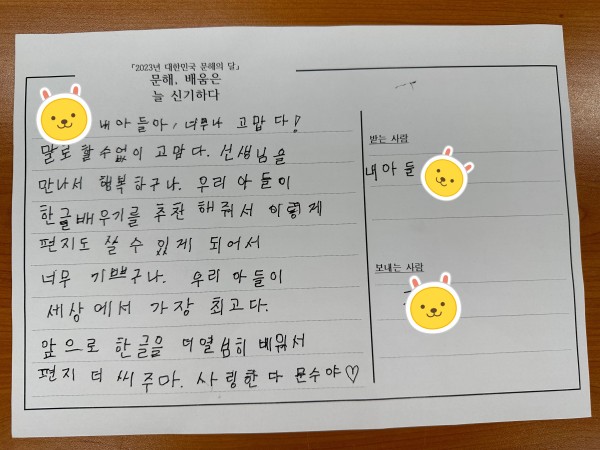 「2023년 대한민국 문해의 달」
문해, 배움은
늘 신기하다
내 아들아, 너무나 고맙다!
말로 할 수 없이 고맙다. 선생님을
만나서 행복하구나. 우리 아들이
한글 배우기를 추천 해줘서 이렇게
편지도 쓸 수 있게 되어서
너무 기쁘구나. 우리 아들이
세상에서 가장 최고다.
앞으로 한글을 더 열심히 배워서
편지 더 써 주마. 사랑한다 문수야♡
받는 사람
내 아들
보내는 사람